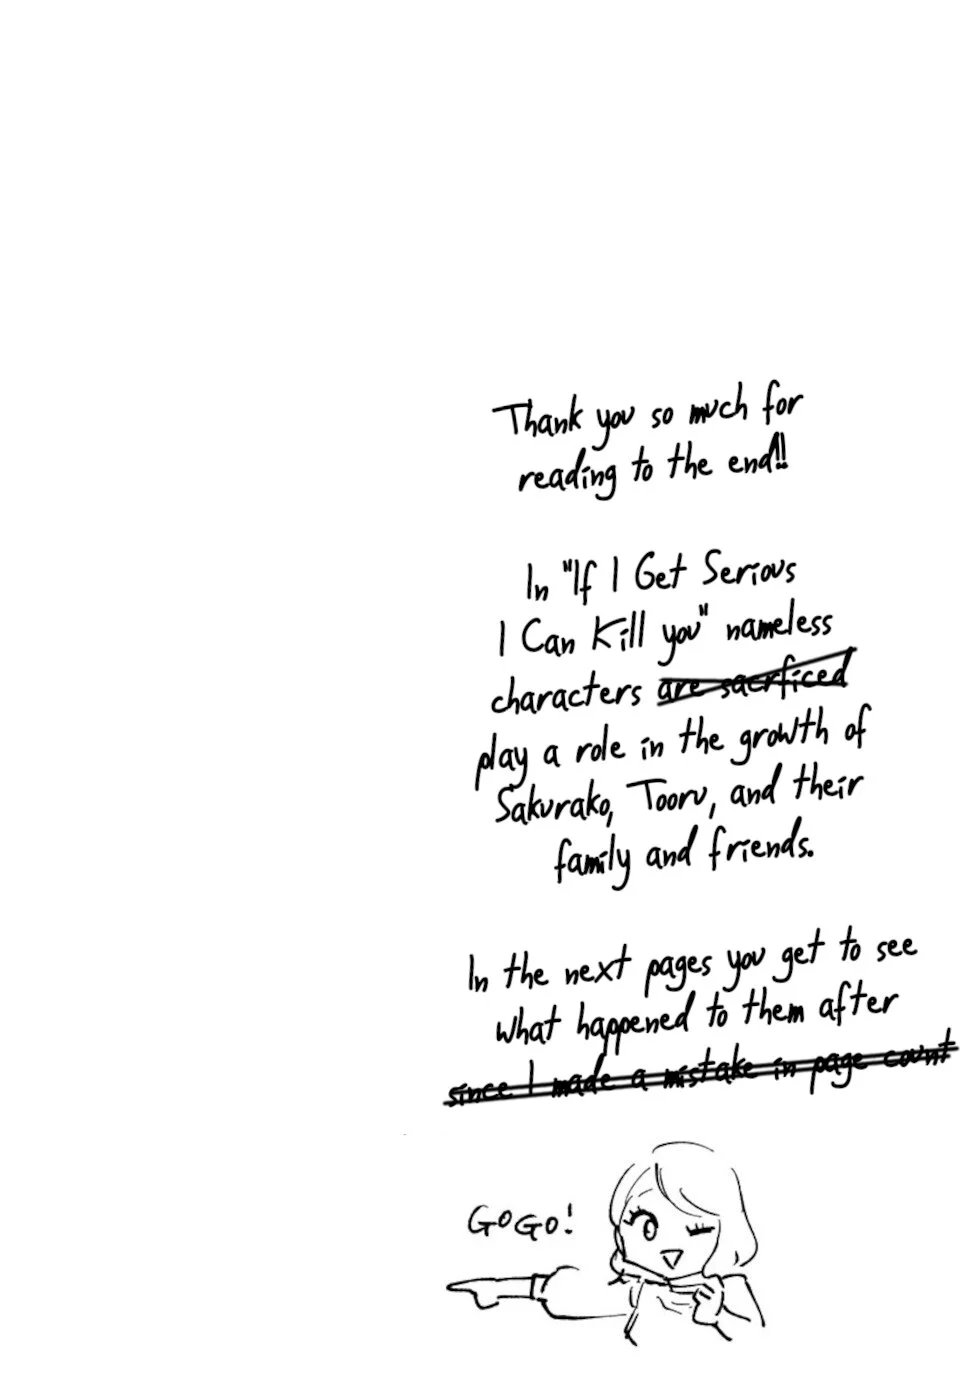 Thank you so much for
reading to the end!!
In "If I Get Serious
I Can Kill you" nameless
characters are sacrficed
play a role in the growth of
Sakurako, Tooru, and their
family and friends.
In the next pages you get to see
what happened to them after
since I made a mistake in page count
GOGO!